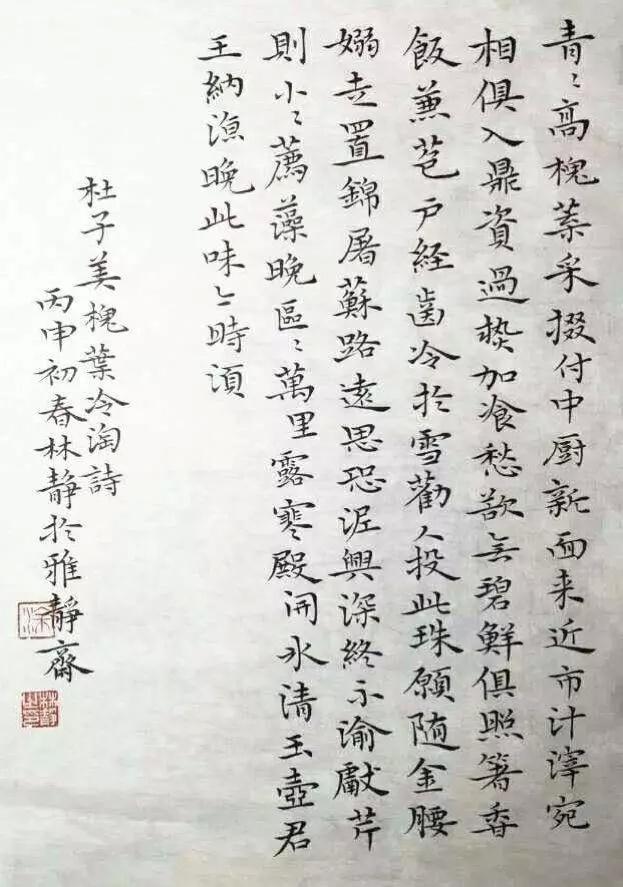 青〻高槐葉采掇付中厨新面来近市汁滓宛
相俱入鼎資過熱加飡愁欲无碧鮮俱照箸香
飯兼苞户経歯冷於雪勸人投此珠願随金腰
嫋走置錦屠蘇路遠思恐泥興深終不渝獻芹
則小〻薦藻晚區〻萬里露寒殿開冰清玉壺君
王納凉晚此味亦時湏
杜子美槐葉冷淘詩
丙申初春林靜於雅靜齋
林靜之印